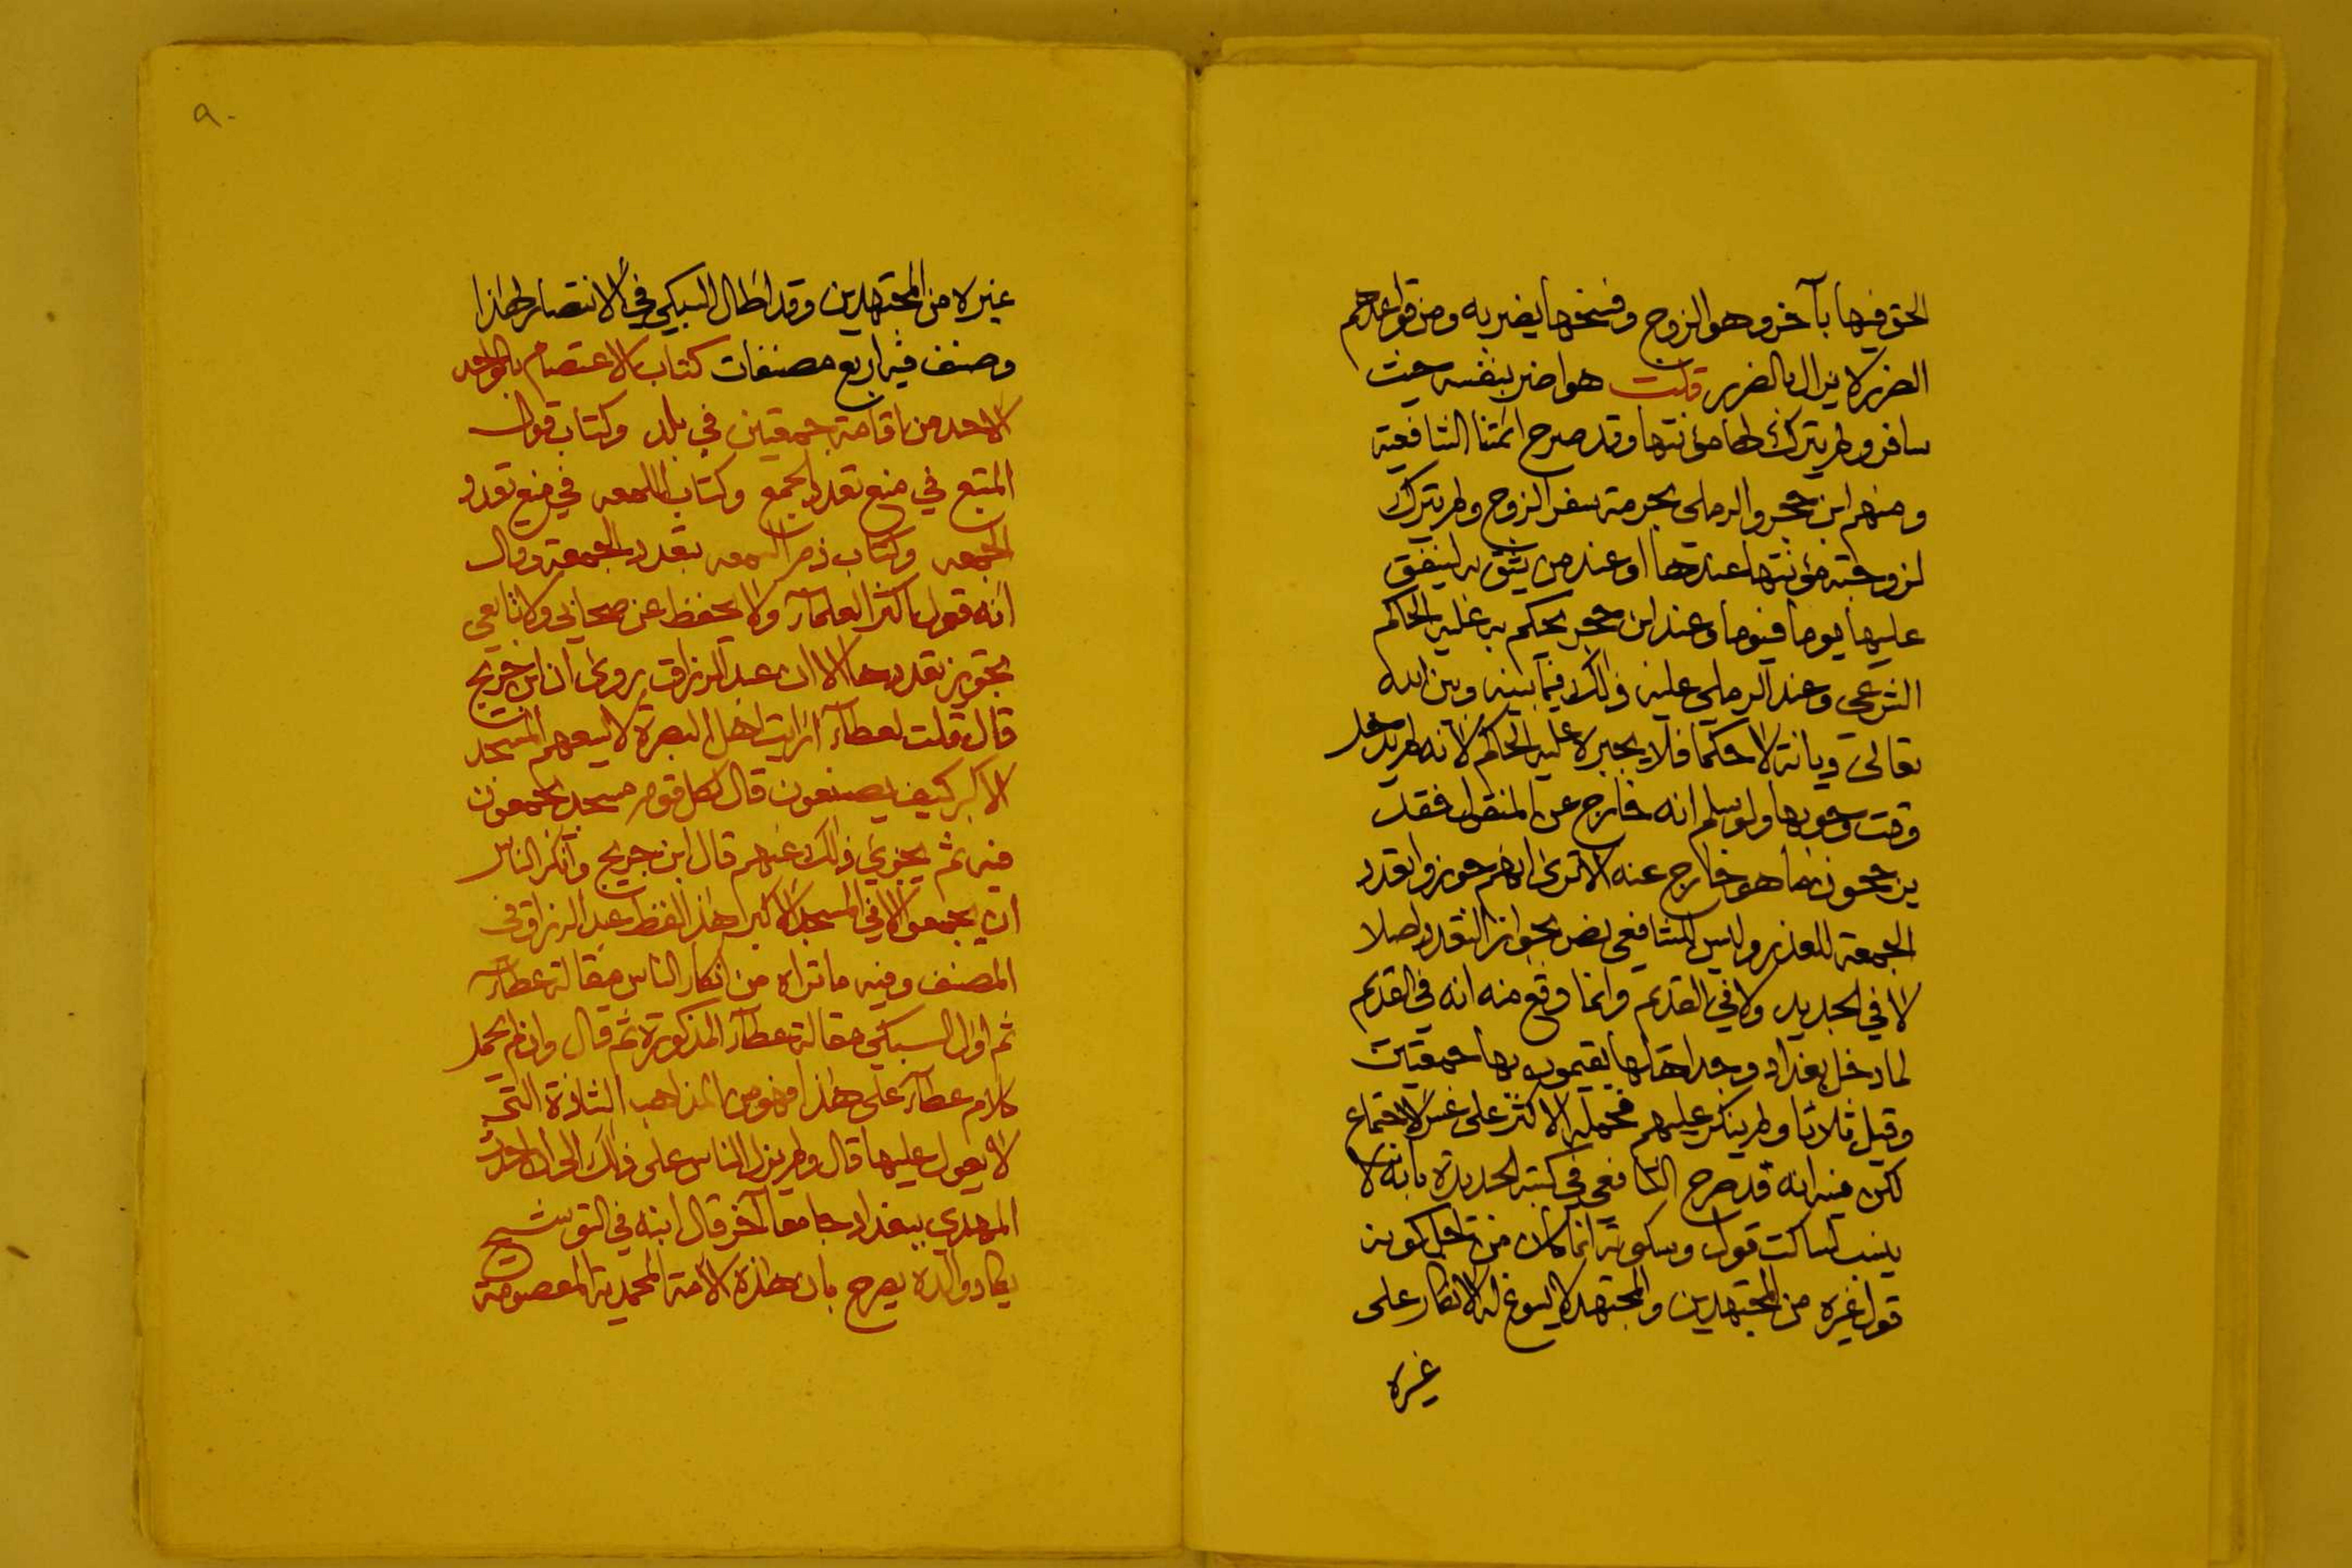 الحق فيها بآخر وهو الزوج وفسخها يضر به ومن قواعدهم
الضرر لا يزال بالضرر قلت هو اضر بنفسه حيث
سافر ولم يترك لها مؤنتها وقد صرح ائمتنا الشافعية
ومنهم ابن حجر والرملي بحرمة سفر الزوج ولم يترك
لزوجته مؤنتها عندها او عند من يثق به لينفق
عليها يوما فيوما وعند ابن حجر يحكم به عليه الحاكم
الشرعي وعند الرملي عليه ذلك فيما بينه وبين الله
تعالى ديانة لا حكما فلا يجبره عليه الحاكم لانه لم يدخل
وقت وجوبها ولو سلم انه خارج عن المنقول فقد
يرجحون ما هو خارج عنه الا ترى انهم جوزوا تعدد
الجمعة للعذر وليس للشافعي نص بجواز التعدد اصلا
لا في الجديد ولا في القديم وانما وقع منه انه في القديم
لما دخل بغداد وجد اهلها يقيمون بها جمعتين
وقيل ثلاثا ولم ينكر عليهم فحمله الاكثر على عسر الاجتماع
لكن فيه انه قد صرح الشافعي في كتبه الجديدة بانه لا
ينسب لساكت قول وسكوته انما كان من اجل كونه
قول غيره من المجتهدين والمجتهد لا يسوغ له الانكار على
غيره
٩٠
غيره من المجتهدين وقد اطال السبكي في الانتصار لهذا
وصنف فيه اربع مصنفات كتاب الاعتصام بالواحد
الاحد من اقامة جمعتين في بلد وكتاب قول
المتبع في منع تعدد الجمع وكتاب اللمعه في منع تعدد
الجمعه وكتاب ذم السمعه بتعدد الجمعة وقال
انه قول اكثر العلماء ولا يحفظ عن صحابي ولا تابعي
تجويز تعددها الا ان عبد الرزاق روى ان ابن جريج
قال قلت لعطاء ارايت اهل البصرة لا يسعهم المسجد
الاكبر كيف يصنعون قال لكل قوم مسجد يجمعون
فيه ثم يجزي ذلك عنهم قال ابن جريج وانكر الناس
ان يجمعوا الا في المسجد الاكبر هذا لفظ عبد الرزاق في
المصنف وفيه ما تراه من انكار الناس مقالة عطاء
ثم اول السبكي مقالة عطاء المذكورة ثم قال وان لم يحمل
كلام عطاء على هذا فهو من المذاهب الشاذة التي
لا يعول عليها قال ولم يزل الناس على ذلك الى ان احدث
المهدي ببغداد جامعا آخر قال ابنه في التوشيح
يكاد والده يصرح بان هذه الامة المحمدية المعصومة